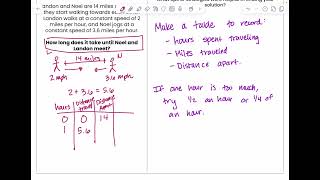 Landon and Noel are 14 miles
they start walking towards e
Landon walks at a constant speed of 2
miles per hour, and Noel jogs at a
constant speed of 3.6 miles per hour.
How long does it take until Noel and
Landon meet?
L 14 miles N
2 mph 3.6 mph
2 + 3.6 = 5.6
hours Distance travel Distance apart
0 0 14
1 5.6
solution?
Make a table to record:
- Hours spent traveling
- Miles traveled
- Distance apart.
If one hour is too much,
try 1/2 an hour or 1/4 of
an hour.